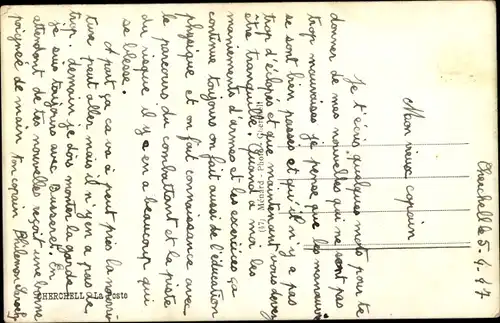 Cherchell le 5. 4. 47
Mon vieux copain
Je t'écris quelques mots pour te
donner de mes nouvelles qui ne sont pas
trop mauvaises je pense que les manœuvres
se sont bien passées et qu'il n'y a pas
trop d'éclopés et que maintenant vous devez
être tranquille. Quand à moi les
maniements d'armes et les exercices ça
continue toujours on fait aussi de l'éducation
physique et on fait connaissance avec
le parcours du combattant et la piste
du risque il y en a beaucoup qui
se blesse.
A part ça ca va à peut près la nourri
ture peut aller mais il n'y en a pas de
trop. demain je dois monter la garde
je suis toujours avec En
attendant de tes nouvelles reçoit une bonne
poignée de main ton copain Philemon
CHERCHELL - La Poste